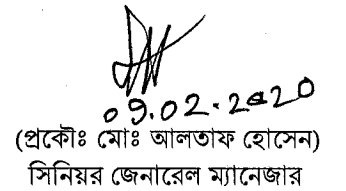 09.02.2020
(প্রকৌঃ মোঃ আলতাফ হোসেন)
সিনিয়র জেনারেল ম্যানেজার